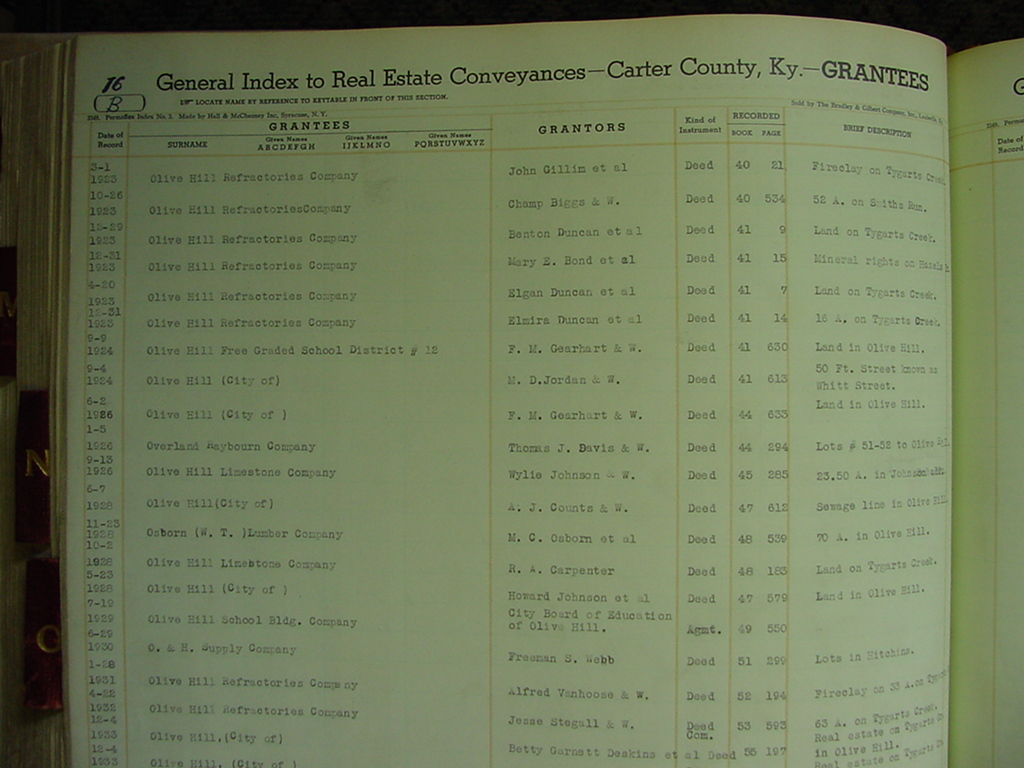 16
B
General Index to Real Estate Conveyances—Carter County, Ky.—GRANTEES
LOCATE NAME BY REFERENCE TO KEYTABLE IN FRONT OF THIS SECTION.
Index No. 2. Made by Hall & McChesney Inc, Syracuse, N. Y.
Sold by The Bradley & Gilbert Company, Inc.,
Date of Record GRANTEES SURNAME Given Names ABCDEFGH Given Names IJKLMNO Given Names PQRSTUVWXYZ GRANTORS Kind of Instrument RECORDED BOOK PAGE BRIEF DESCRIPTION
3-1 1923 Olive Hill Refractories Company John Gillim et al Deed 40 21 Fireclay on Tygarts Creek.
10-26 1923 Olive Hill RefractoriesCompany Champ Biggs & W. Deed 40 534 52 A. on Smiths Run.
12-29 1923 Olive Hill Refractories Company Benton Duncan et al Deed 41 9 Land on Tygarts Creek.
12-31 1923 Olive Hill Refractories Company Mary E. Bond et al Deed 41 15 Mineral rights on
4-20 1923 Olive Hill Refractories Company Elgan Duncan et al Deed 41 7 Land on Tygarts Creek.
12-31 1923 Olive Hill Refractories Company Elmira Duncan et al Deed 41 14 16 A. on Tygarts Creek.
9-9 1924 Olive Hill Free Graded School District # 12 F. M. Gearhart & W. Deed 41 630 Land in Olive Hill.
9-4 1924 Olive Hill (City of) M. D.Jordan & W. Deed 41 613 50 Ft. Street known as
Whitt Street.
6-2 1926 Olive Hill (City of ) F. M. Gearhart & W. Deed 44 633 Land in Olive Hill.
1-5 1926 Overland Raybourn Company Thomas J. Davis & W. Deed 44 294 Lots # 51-52 to Olive
9-13 1926 Olive Hill Limestone Company Wylie Johnson & W. Deed 45 285 23.50 A. in Johnson
6-7 1928 Olive Hill(City of) A. J. Counts & W. Deed 47 612 Sewage line in Olive Hill
11-23 1928 Osborn (W. T. )Lumber Company M. C. Osborn et al Deed 48 539 70 A. in Olive Hill.
10-2 1928 Olive Hill Limestone Company R. A. Carpenter Deed 48 183 Land on Tygarts Creek.
5-23 1928 Olive Hill (City of ) Howard Johnson et al Deed 47 579 Land in Olive Hill.
7-19 1929 Olive Hill School Bldg. Company City Board of Education
of Olive Hill. Agmt. 49 550
6-29 1930 O. & H. Supply Company Freeman S. Webb Deed 51 299 Lots in Hitchins.
1-28 1931 Olive Hill Refractories Company Alfred Vanhoose & W. Deed 52 194 Fireclay on 33 A.on
4-22 1932 Olive Hill Refractories Company Jesse Stegall & W. Deed 53 593 63 A. on Tygarts Creek.
12-4 1933 Olive Hill,(City of) Betty Garnett Deskins et al Com. Deed 55 197 Real estate on Tygarts
in Olive Hill.
12-4 1933 Olive Hill, (City of ) Real estate on Tygarts
N
O
G
Date of
Record